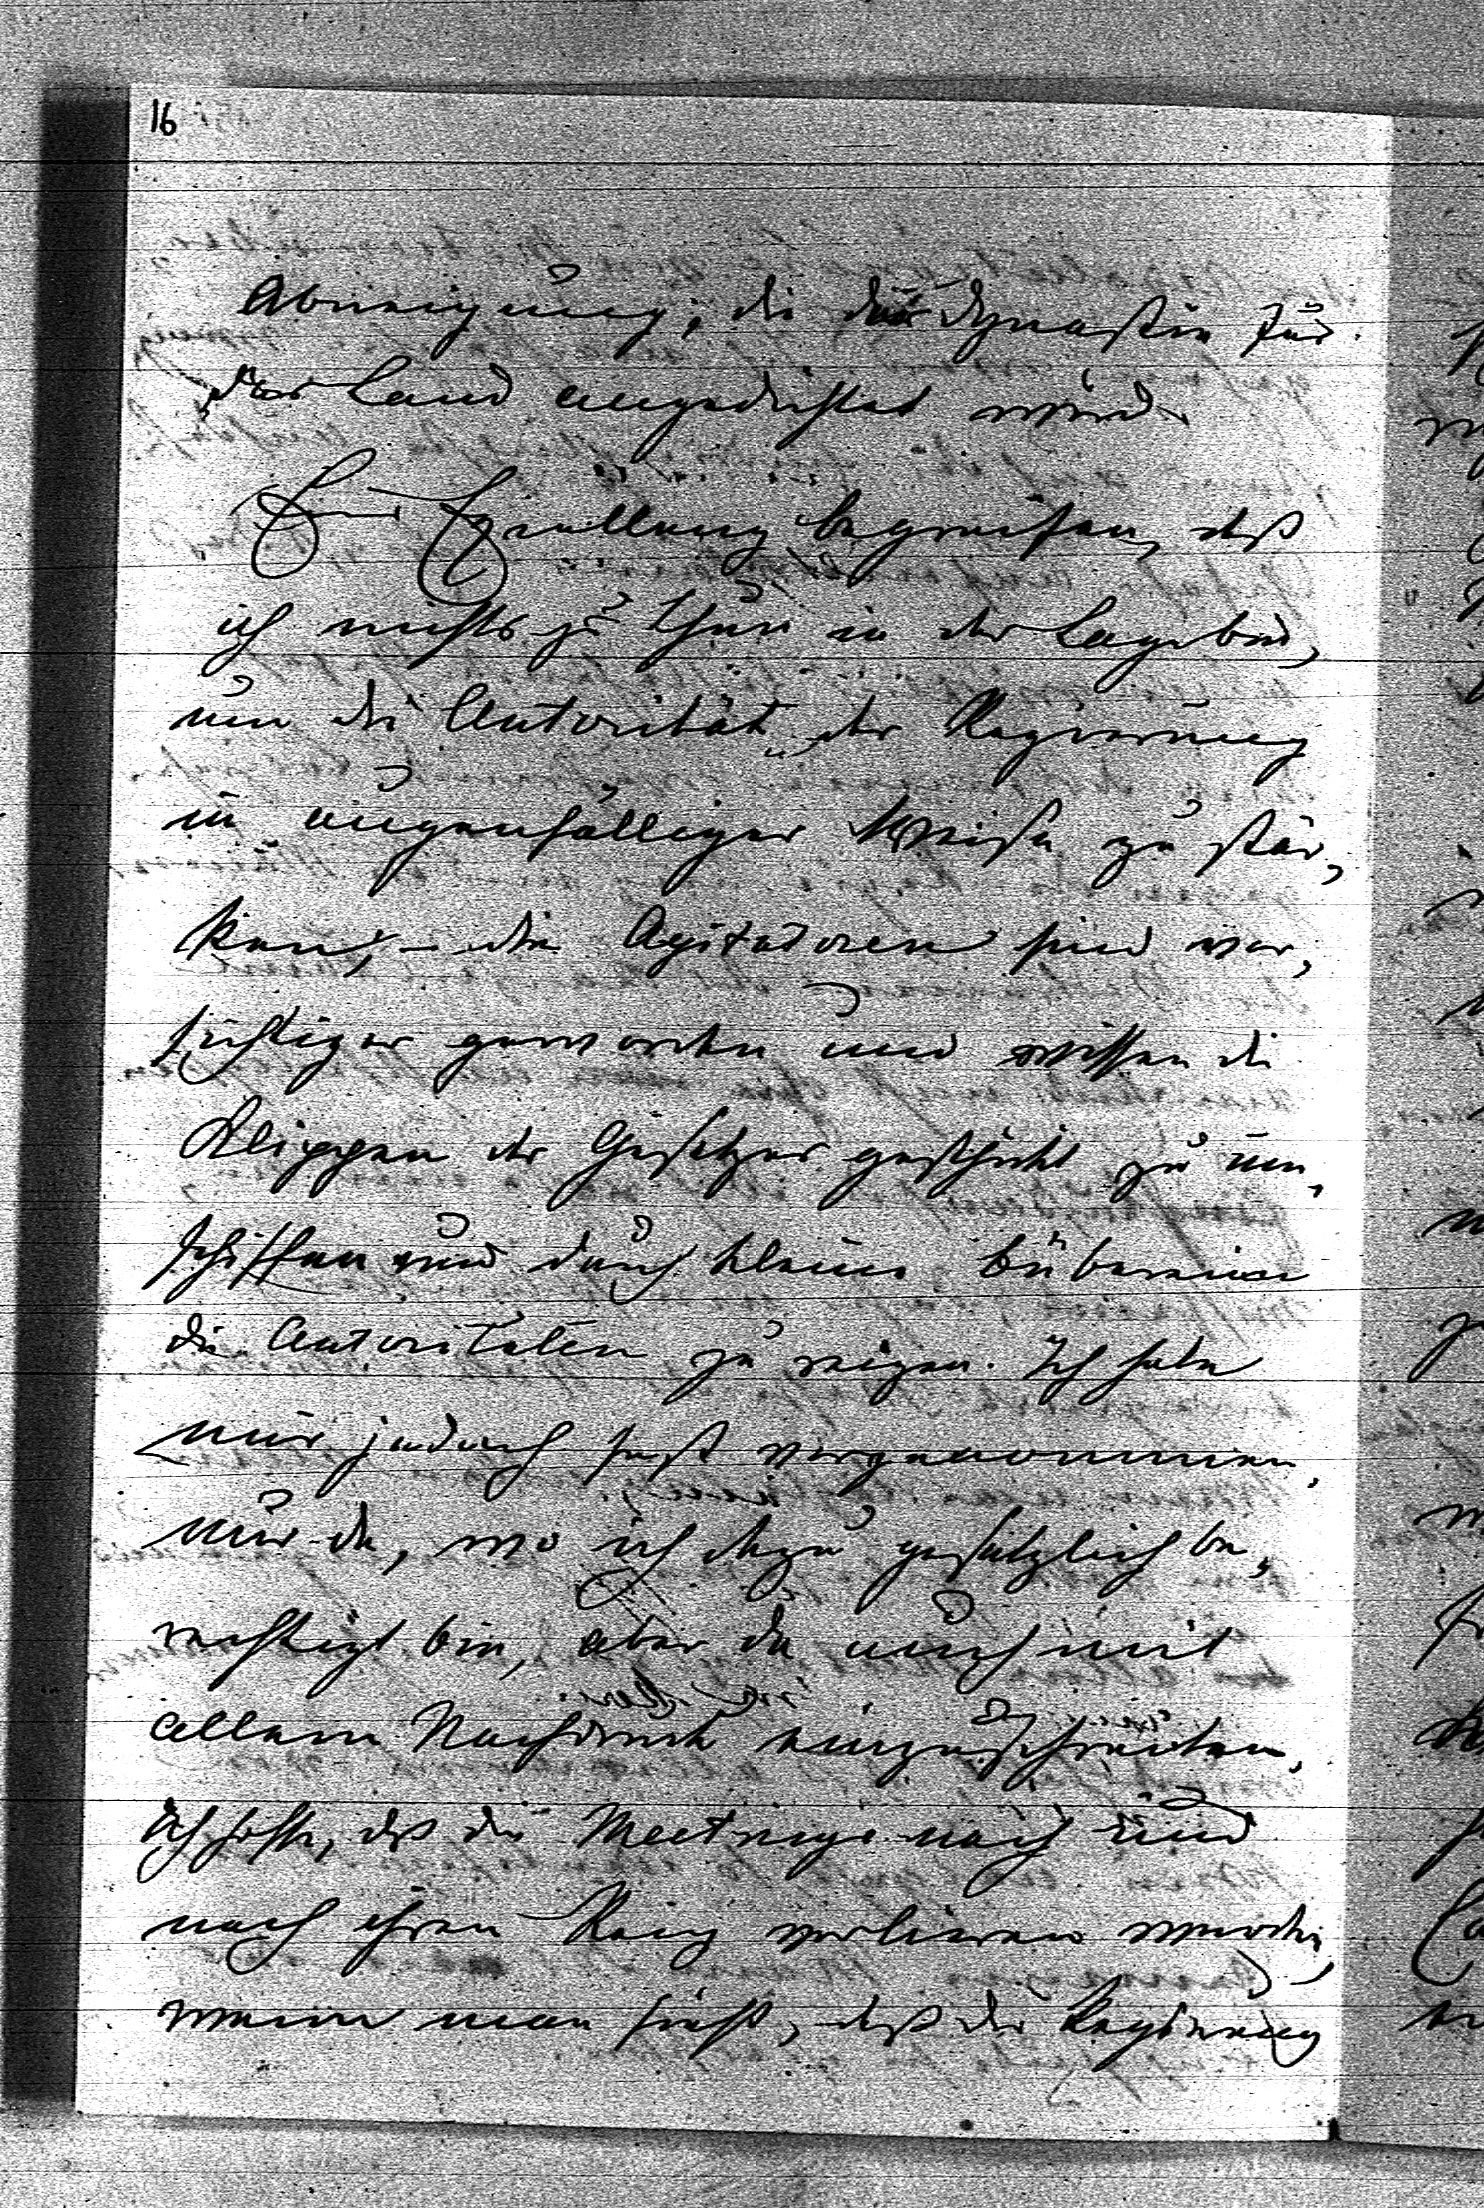 16
Abneigung, die der Dynastie für
das Land angedichtet wird.
Eure Excellenz begreifen, daß
ich nichts zu thun in der Lage bin,
um die Autorität der Regierung
in augenfälliger Weise zu stär,
ken, – die Agitatoren sind vor,
sichtiger geworden und wissen die
Klippen der Gesetzes geschickt zu um,
schiffen und durch kleine Bübereien
die Autoritäten zu reizen. Ich habe
mir jedoch fest vorgenommen,
nur da, wo ich dazu gesetzlich be,
rechtigt bin, aber da auch mit
allem Nachdruck einzuschreiten.
Ich hoffe, daß die Meetings nach und
nach ihren Reiz verlieren werden,
wenn man sieht, daß die Regierung